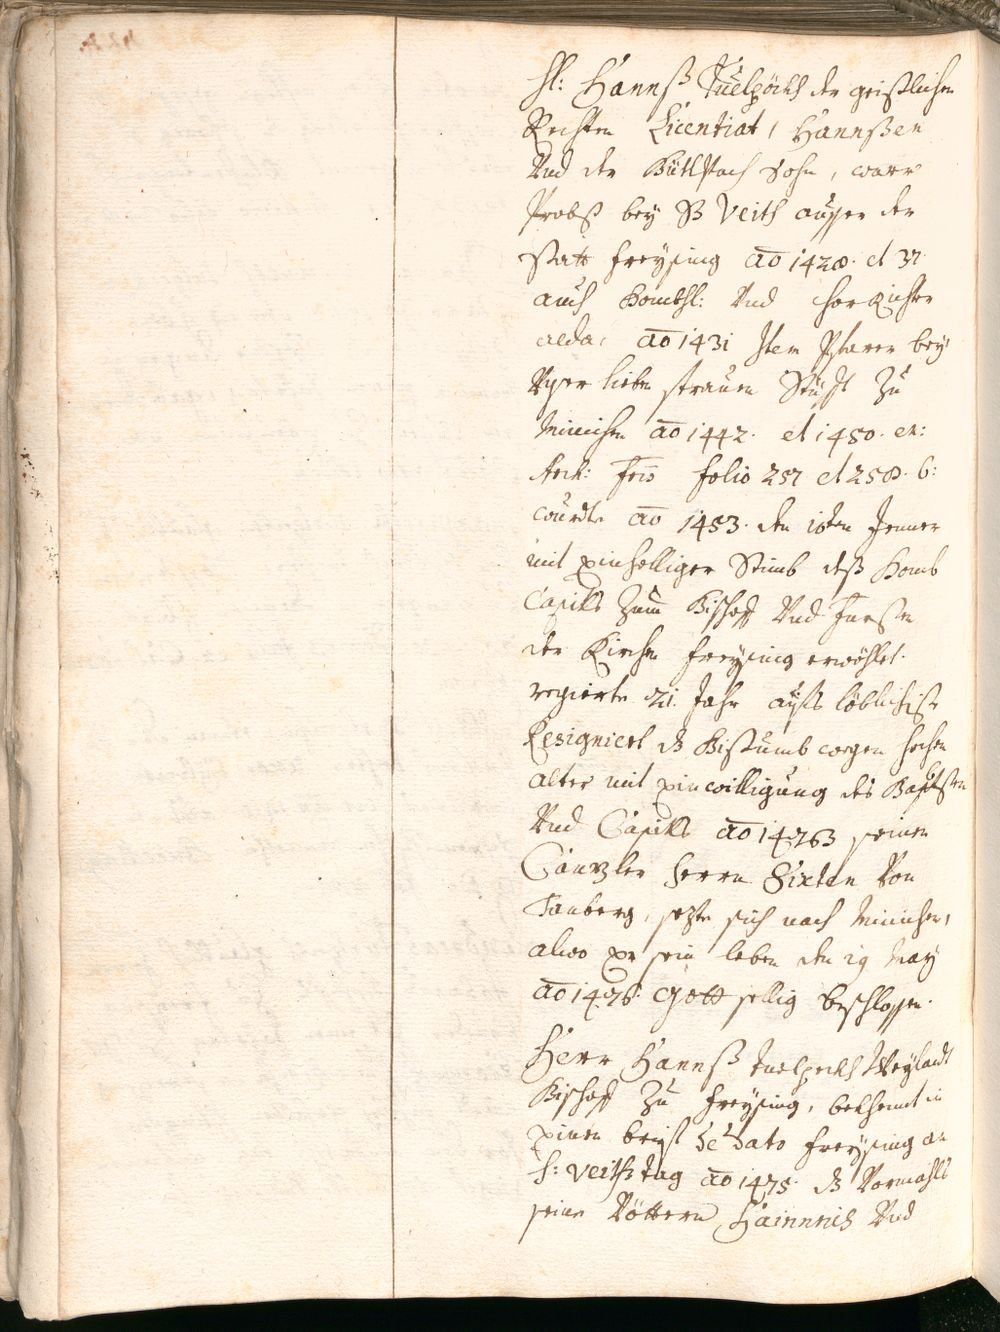 H: Hannß Tuelpöckh der geistlichen
Rechten Licentiat, Hannßen
Und der Büttlpach Sohn, warr
Probst bey St Veith ausser der
statt Freysing ao 1428. et 37.
auch Dombh: Und Chor Richter
alda, ao 1431 Item Pfarrer bey
Unser lieben frauen Stüfft Zu
Minichen ao 1442. et 1450. ex:
folio 257 et 258. b:
wurdte ao 1453. den 16ten Jenner
mit einhelliger Stimb deß Domb
Capitls Zum Bischoff Und Fürsten
der Kirchen Freysing erwöhlet.
regierte 21. Jahr aufs löblichist
Resigniert ds Bistumb wegen hochen
alter mit einwilligung des Bapsten
Und Capitls ao 1473 seinen
Canzler Herrn Sixten Von
Tanberg, sezte sich nach Minichen,
alwo er sein leben den 29 May
ao 1476. Gott sellig beschlossen.
Herr Hannß Tuelpeckh Weylandt
Bischoff Zu Freysing, bekhent in
einen brieff de Dato Freysing an
S: Veiths tag ao 1475. ds Vormahls
seine Vöttern Hainrich Und